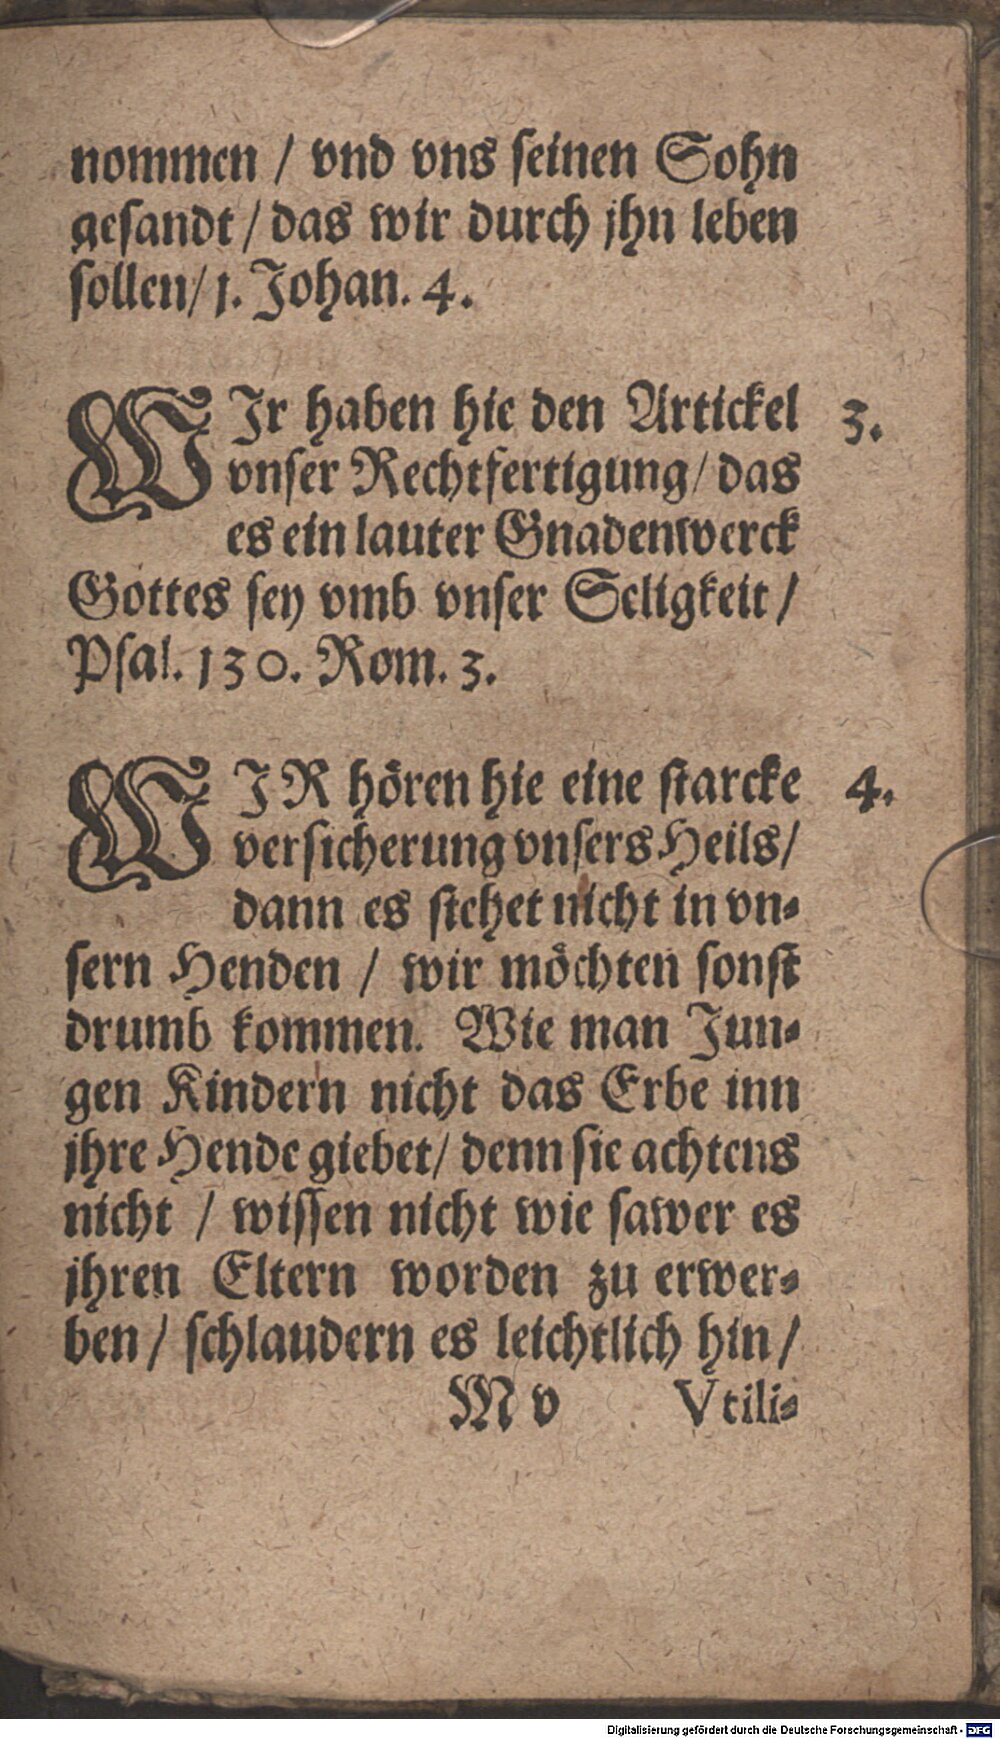 nommen / vnd vns seinen Sohn
gesandt / das wir durch jhn leben
sollen / 1. Johan. 4.
WJr haben hie den Artickel 3.
vnser Rechtfertigung / das
es ein lauter Gnadenwerck
Gottes sey vmb vnser Seligkeit /
Psal. 130. Rom. 3.
WJR hören hie eine starcke 4.
versicherung vnsers Heils /
dann es stehet nicht in vn-
sern Henden / wir möchten sonst
drumb kommen. Wie man Jun-
gen Kindern nicht das Erbe inn
jhre Hende giebet / denn sie achtens
nicht / wissen nicht wie sawer es
jhren Eltern worden zu erwer-
ben / schlaudern es leichtlich hin /
M v Vtili-
Digitalisierung gefördert durch die Deutsche Forschungsgemeinschaft - DFG